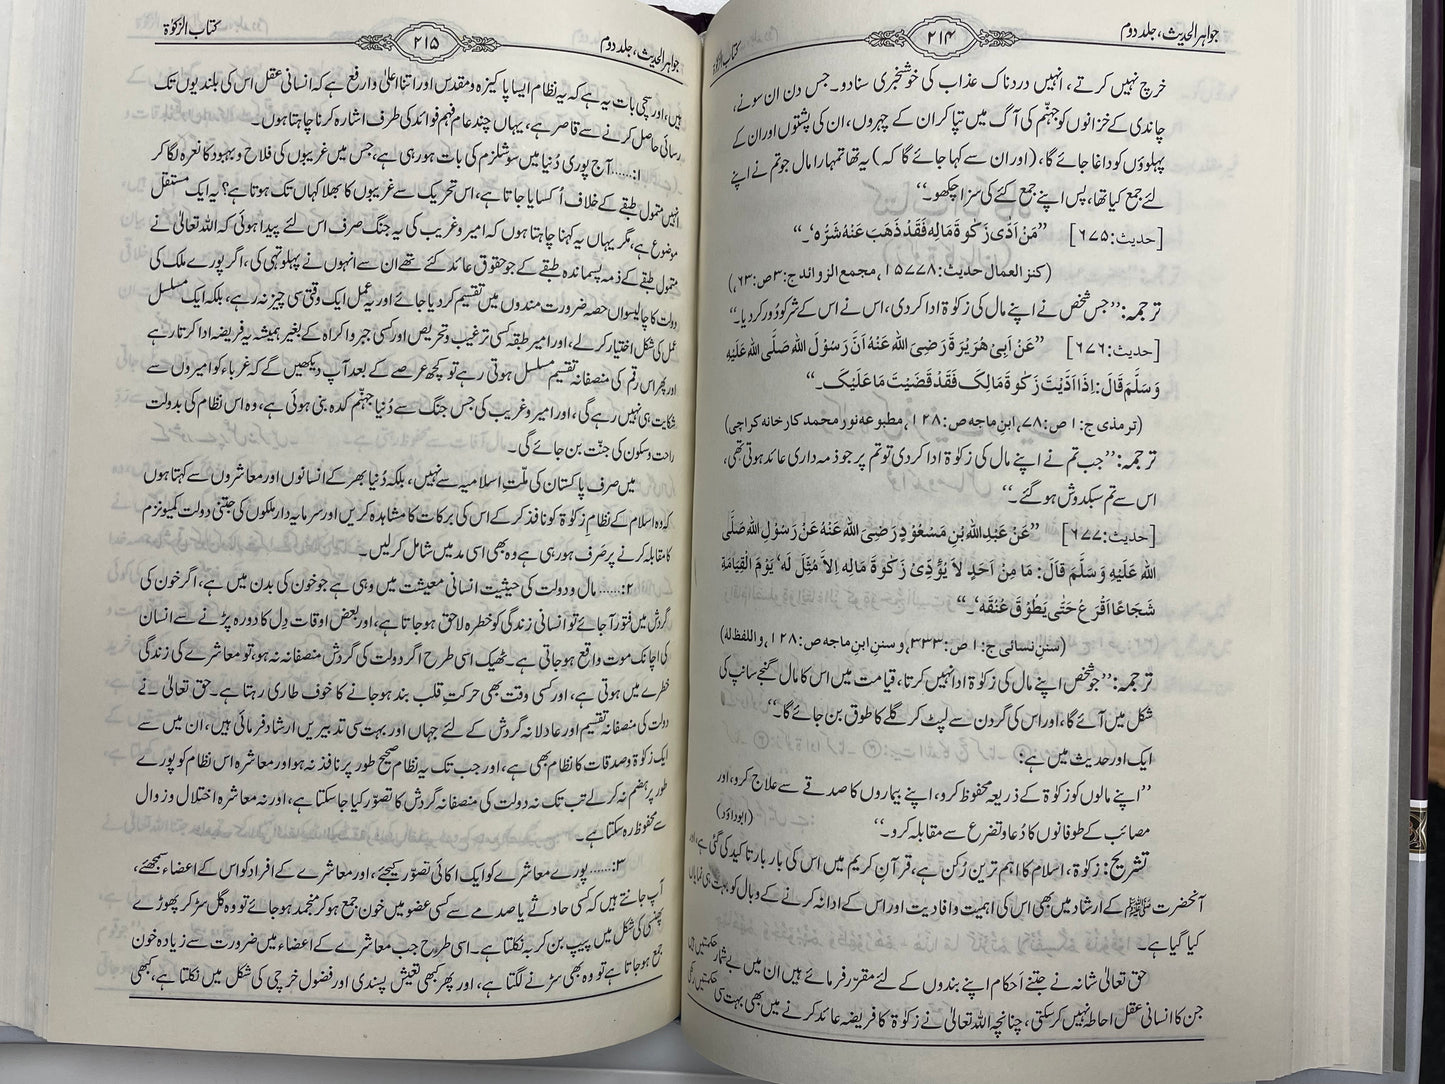 جواہر الحدیث، جلد دوم
۲۱۴
کتاب الزکوٰۃ
خرچ نہیں کرتے، انہیں دردناک عذاب کی خوشخبری سنادو۔ جس دن ان سونے،
چاندی کے خزانوں کو جہنّم کی آگ میں تپاکر ان کے چہروں، ان کی پشتوں اور ان کے
پہلوؤں کو داغا جائے گا، (اور ان سے کہا جائے گا کہ) یہ تھا تمہارا مال جو تم نے اپنے
لئے جمع کیا تھا، پس اپنے جمع کئے کی سزا چکھو۔‘‘
[حدیث:۶۷۵] ’’مَنْ اَدّٰی زَکٰوۃَ مَالِہٖ فَقَدْ ذَھَبَ عَنْہُ شَرُّہ‘۔‘‘
(کنز العمال حدیث:۱۵۷۷۸، مجمع الزوائد ج:۳ ص:۶۳)
ترجمہ:’’جس شخص نے اپنے مال کی زکوٰۃ ادا کردی، اس نے اس کے شر کو دُور کردیا۔‘‘
[حدیث:۶۷۶] ’’عَنْ اَبِیْ ھُرَیْرَۃَ رَضِیَ اللہُ عَنْہُ اَنَّ رَسُوْلَ اللہِ صَلَّی اللہُ عَلَیْہِ
وَسَلَّمَ قَالَ: اِذَا اَدَّیْتَ زَکٰوۃَ مَالِکَ فَقَدْ قَضَیْتَ مَا عَلَیْکَ۔‘‘
(ترمذی ج:۱ ص:۷۸، ابنِ ماجہ ص:۱۲۸، مطبوعہ نور محمد کارخانہ کراچی)
ترجمہ:’’جب تم نے اپنے مال کی زکوٰۃ ادا کردی تو تم پر جو ذمہ داری عائد ہوتی تھی،
اس سے تم سبکدوش ہوگئے۔‘‘
[حدیث:۶۷۷] ’’عَنْ عَبْدِ اللہِ بْنِ مَسْعُوْدٍ رَضِیَ اللہُ عَنْہُ عَنْ رَسُوْلِ اللہِ صَلَّی
اللہُ عَلَیْہِ وَسَلَّمَ قَالَ: مَا مِنْ اَحَدٍ لَا یُؤَدِّیْ زَکٰوۃَ مَالِہٖ اِلَّا مُثِّلَ لَہ‘ یَوْمَ الْقِیَامَۃِ
شُجَاعًا اَقْرَعَ حَتّٰی یُطَوِّقَ عُنُقَہ‘۔‘‘
(سنن نسائی ج:۱ ص:۳۳۳، وسنن ابنِ ماجہ ص:۱۲۸، واللفظ لہٗ)
ترجمہ:’’جو شخص اپنے مال کی زکوٰۃ ادا نہیں کرتا، قیامت میں اس کا مال گنجے سانپ کی
شکل میں آئے گا، اور اس کی گردن سے لپٹ کر گلے کا طوق بن جائے گا۔‘‘
ایک اور حدیث میں ہے:
’’اپنے مالوں کو زکوٰۃ کے ذریعہ محفوظ کرو، اپنے بیماروں کا صدقے سے علاج کرو، اور
مصائب کے طوفانوں کا دُعا و تضرع سے مقابلہ کرو۔‘‘ (ابوداؤد)
تشریح: زکوٰۃ، اسلام کا اہم ترین رُکن ہے، قرآنِ کریم میں اس کی بار بار تاکید کی گئی ہے، اور
آنحضرت ﷺ کے ارشاد میں بھی اس کی اہمیت وافادیت اور اس کے ادا نہ کرنے کے وبال کو بہت ہی نمایاں
کیا گیا ہے۔
حق تعالیٰ شانہ نے جتنے اَحکام اپنے بندوں کے لئے مقرّر فرمائے ہیں ان میں بے شمار حکمتیں ہیں
جن کا انسانی عقل احاطہ نہیں کرسکتی، چنانچہ اللہ تعالیٰ نے زکوٰۃ کا فریضہ عائد کرنے میں بھی بہت سی حکمتیں رکھی
جواہر الحدیث، جلد دوم
۲۱۵
کتاب الزکوٰۃ
ہیں، اور سچی بات یہ ہے کہ یہ نظام ایسا پاکیزہ و مقدس اور اتنا اعلیٰ و ارفع ہے کہ انسانی عقل اس کی بلندیوں تک
رسائی حاصل کرنے سے قاصر ہے، یہاں چند عام فہم فوائد کی طرف اشارہ کرنا چاہتا ہوں۔
۱:......آج پوری دُنیا میں سوشلزم کی بات ہو رہی ہے، جس میں غریبوں کی فلاح و بہبود کا نعرہ لگا کر
انہیں متمول طبقے کے خلاف اُکسایا جاتا ہے، اس تحریک سے غریبوں کا بھلا کہاں تک ہوتا ہے؟ یہ ایک مستقل
موضوع ہے، مگر یہاں یہ کہنا چاہتا ہوں کہ امیر و غریب کی یہ جنگ صرف اس لئے پیدا ہوئی کہ اللہ تعالیٰ نے
متمول طبقے کے ذمہ پسماندہ طبقے کے جو حقوق عائد کئے تھے ان سے انہوں نے پہلو تہی کی، اگر پورے ملک کی
دولت کا چالیسواں حصہ ضرورت مندوں میں تقسیم کردیا جائے اور یہ عمل ایک وقتی سی چیز نہ رہے، بلکہ ایک مسلسل
عمل کی شکل اختیار کرلے، اور امیر طبقہ کسی ترغیب و تحریص اور کسی جبر و اکراہ کے بغیر ہمیشہ یہ فریضہ ادا کرتا رہے
اور پھر اس رقم کی منصفانہ تقسیم مسلسل ہوتی رہے تو کچھ عرصے کے بعد آپ دیکھیں گے کہ غرباء کو امیروں سے
شکایت ہی نہیں رہے گی، اور امیر و غریب کی جس جنگ سے دُنیا جہنّم کدہ بنی ہوئی ہے، وہ اس نظام کی بدولت
راحت و سکون کی جنّت بن جائے گی۔
میں صرف پاکستان کی ملّتِ اسلامیہ سے نہیں، بلکہ دُنیا بھر کے انسانوں اور معاشروں سے کہتا ہوں
کہ وہ اسلام کے نظامِ زکوٰۃ کو نافذ کرکے اس کی برکات کا مشاہدہ کریں اور سرمایہ دار ملکوں کی جتنی دولت کمیونزم
کا مقابلہ کرنے پر صَرف ہو رہی ہے وہ بھی اسی مد میں شامل کرلیں۔
۲:......مال و دولت کی حیثیت انسانی معیشت میں وہی ہے جو خون کی بدن میں ہے، اگر خون کی
گردش میں فتور آجائے تو انسانی زندگی کو خطرہ لاحق ہوجاتا ہے، اور بعض اوقات دِل کا دورہ پڑنے سے انسان
کی اچانک موت واقع ہوجاتی ہے۔ ٹھیک اسی طرح اگر دولت کی گردش منصفانہ نہ ہو، تو معاشرے کی زندگی
خطرے میں ہوتی ہے، اور کسی وقت بھی حرکتِ قلب بند ہوجانے کا خوف طاری رہتا ہے۔ حق تعالیٰ نے
دولت کی منصفانہ تقسیم اور عادلانہ گردش کے لئے جہاں اور بہت سی تدبیریں ارشاد فرمائی ہیں، ان میں سے
ایک زکوٰۃ و صدقات کا نظام بھی ہے، اور جب تک یہ نظام صحیح طور پر نافذ نہ ہو اور معاشرہ اس نظام کو پورے
طور پر ہضم نہ کرلے تب تک نہ دولت کی منصفانہ گردش کا تصوّر کیا جاسکتا ہے، اور نہ معاشرہ اختلال و زوال
سے محفوظ رہ سکتا ہے۔
۳:......پورے معاشرے کو ایک اکائی تصوّر کیجئے، اور معاشرے کے افراد کو اس کے اعضاء سمجھئے،
آپ جانتے ہیں کہ کسی حادثے یا صدمے سے کسی عضو میں خون جمع ہوکر منجمد ہوجائے تو وہ گل سڑ کر پھوڑے
پھنسی کی شکل میں پیپ بن کر بہہ نکلتا ہے۔ اسی طرح جب معاشرے کے اعضاء میں ضرورت سے زیادہ خون
جمع ہوجاتا ہے تو وہ بھی سڑنے لگتا ہے، اور پھر کبھی تعیش پسندی اور فضول خرچی کی شکل میں نکلتا ہے، کبھی